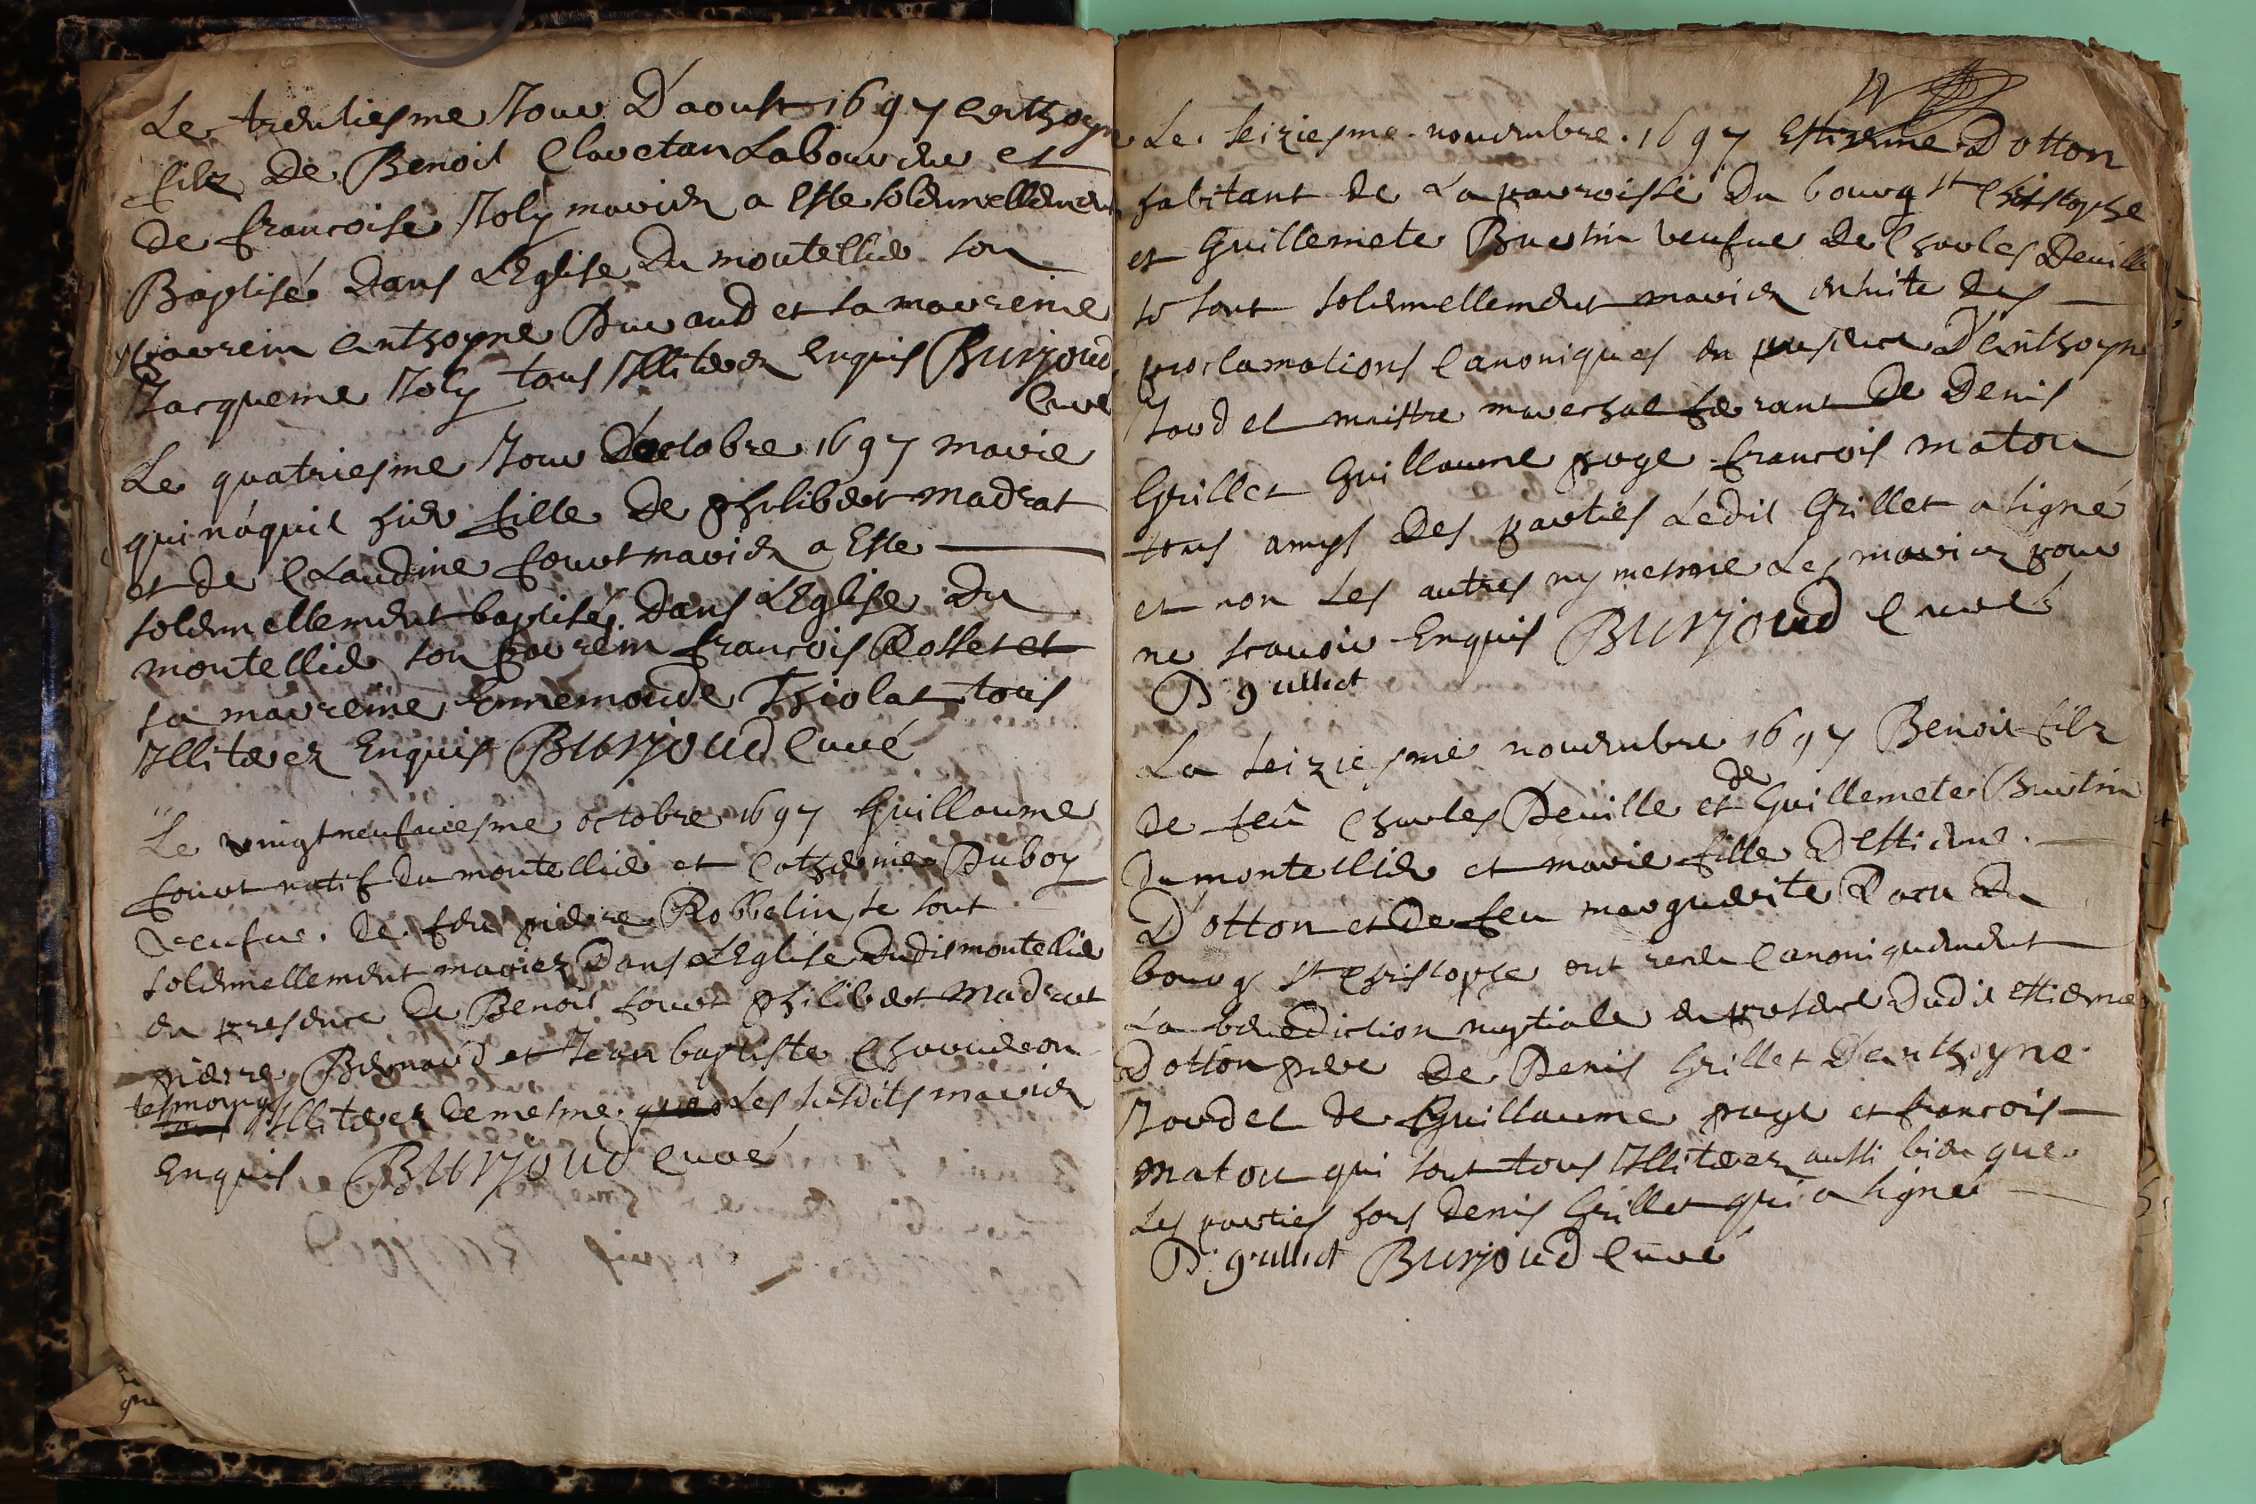 Le trentiesme Jour D'aoust 1697 Anthoyne
filz De Benoit Clavetan Laboureur et
De francoise Joly mariez a Este solemnellement
Baptisé Dans L'Eglise Du montellier son
parrein Anthoyne Durand et sa marreine
Jacqueme Joly tous Illiterez Enquis Burjoud
Curé
Le quatriesme Jour D'octobre 1697 marie
qui náquit hier fille De philibert madrat
et de Claudine fourt mariez a Este
solemnellement baptisée Dans L'Eglise Du
montellier son parrein francois Rosset et
sa marreine Ennemonde Thiolat tous
Illiterez Enquis Burjoud Curé
Le vingtneufviesme octobre 1697 Guillaume
fourt natif du montellier et Catherine Duboy
veufve De feu pierre Robbelin se sont
solemnellement mariez Dans L'Eglise Dudit montellier
en presence De Benoit fourt philibert Madrat
pierre Bernard et Jean baptiste
tesmoings Illiterez de mesme que Les susdits mariez
Enquis Burjoud Curé
12
Le seiziesme novembre 1697 Estienne D'otton
habitant de La parroisse Du bourg st Christophe
et Guillemete Burtin veufve De Charles Deville
se sont solemnellement mariez ensuite des
proclamations Canoniques en presence D'Anthoyne
Jordel maistre mareschal ferrant De Denis
Grillet Guillaume puge francois maton
tous amys Des parties Ledit Grillet a signé
et non Les autres ny mesme Les mariez pour
ne scavoir Enquis Burjoud Curé
D. grilliet
Le seiziesme novembre 1697 Benoit filz
de
De feu Charles Deville et Guillemete Burtin
Du montellier et marie fille D'Estienne
D'otton et De feu marguerite Du
bourg st Christophe ont receu Canoniquement
La benediction nuptiale en presence Dudit Estienne
Dotton pere De Denis Grillet D'Anthoyne
Jordel de Guillaume puge et francois
maton qui sont tous Illiterez aussi bien que
Les parties hors Denis Grillet qui a signé
D. grilliet Burjoud Curé